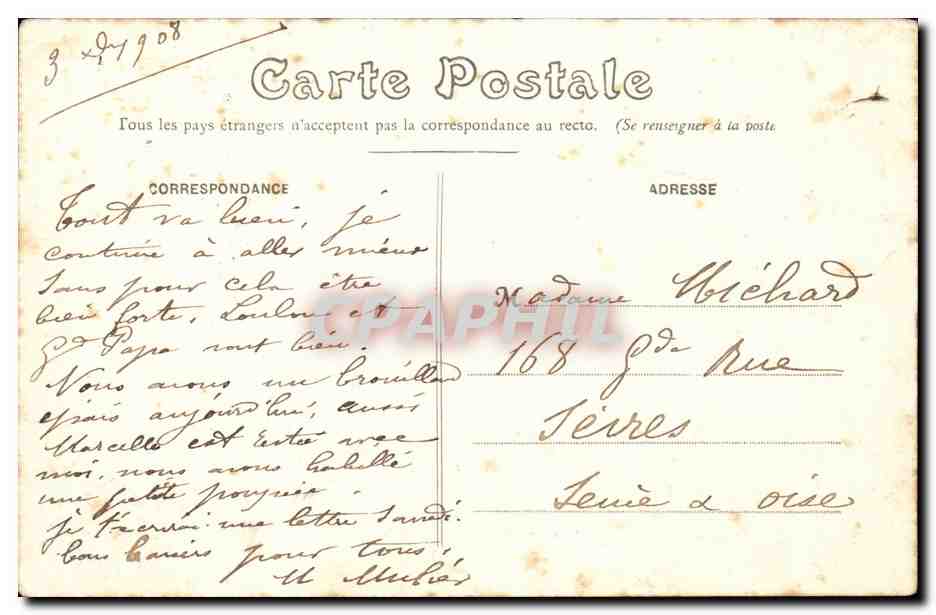 3 Xbre 1908
Carte Postale
Tous les pays étrangers n'acceptent pas la correspondance au recto. (Se renseigner à la poste
CORRESPONDANCE
Tout va bien, je
continue à aller mieux
sans pour cela être
bien forte, Loulou et
Gd Papa vont bien.
Nous avons un brouillard
épais aujourd'hui, aussi
Marcelle est restée avec
moi, nous avons habillé
une petite poupée.
je t'écrirai une lettre Samedi.
bons baisers pour tous,
M
ADRESSE
Madame Michard
168 Gde Rue
Sèvres
Seine & Oise
CPAPHIL